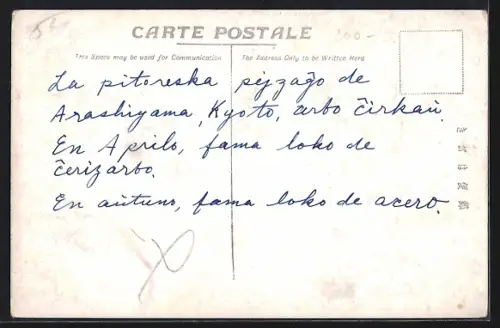 CARTE POSTALE
This Space may be used for Communication
The Express Only to be Written Here
La pitoreska pejzaĝo de
Arashiyama, Kyoto, arbo ĉirkaŭ.
En Aprilo, fama loko de
ĉerizarbo.
En aŭtuno, fama loko de acero.